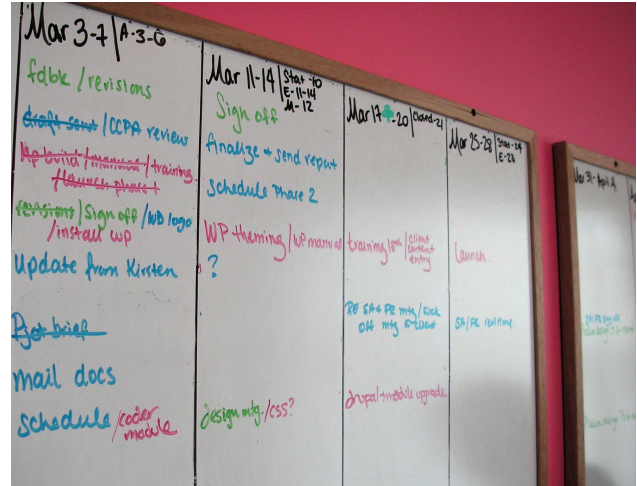 Mar 3-7 | A-3-6
fdbk / revisions
draft sent / CCPA review
wp build / manual / training
/ launch phase 1
revisions / Sign off / WD logo
/ install wp
Update from Kirsten
Pjct brief
mail docs
schedule / coder
module
Mar 11-14 | Stat-10
E-11-14
M-12
Sign off
finalize + send report
schedule Phase 2
WP theming / WP manual
?
design mtg. / CSS?
Mar 17-20 | closed-21
training / client
content
entry
mtg / kick
off mtg
drupal + module upgrade
Mar 25-28 | Stat-24
E-26
Launch
SA/PR revisions
Mar 31 - April 4